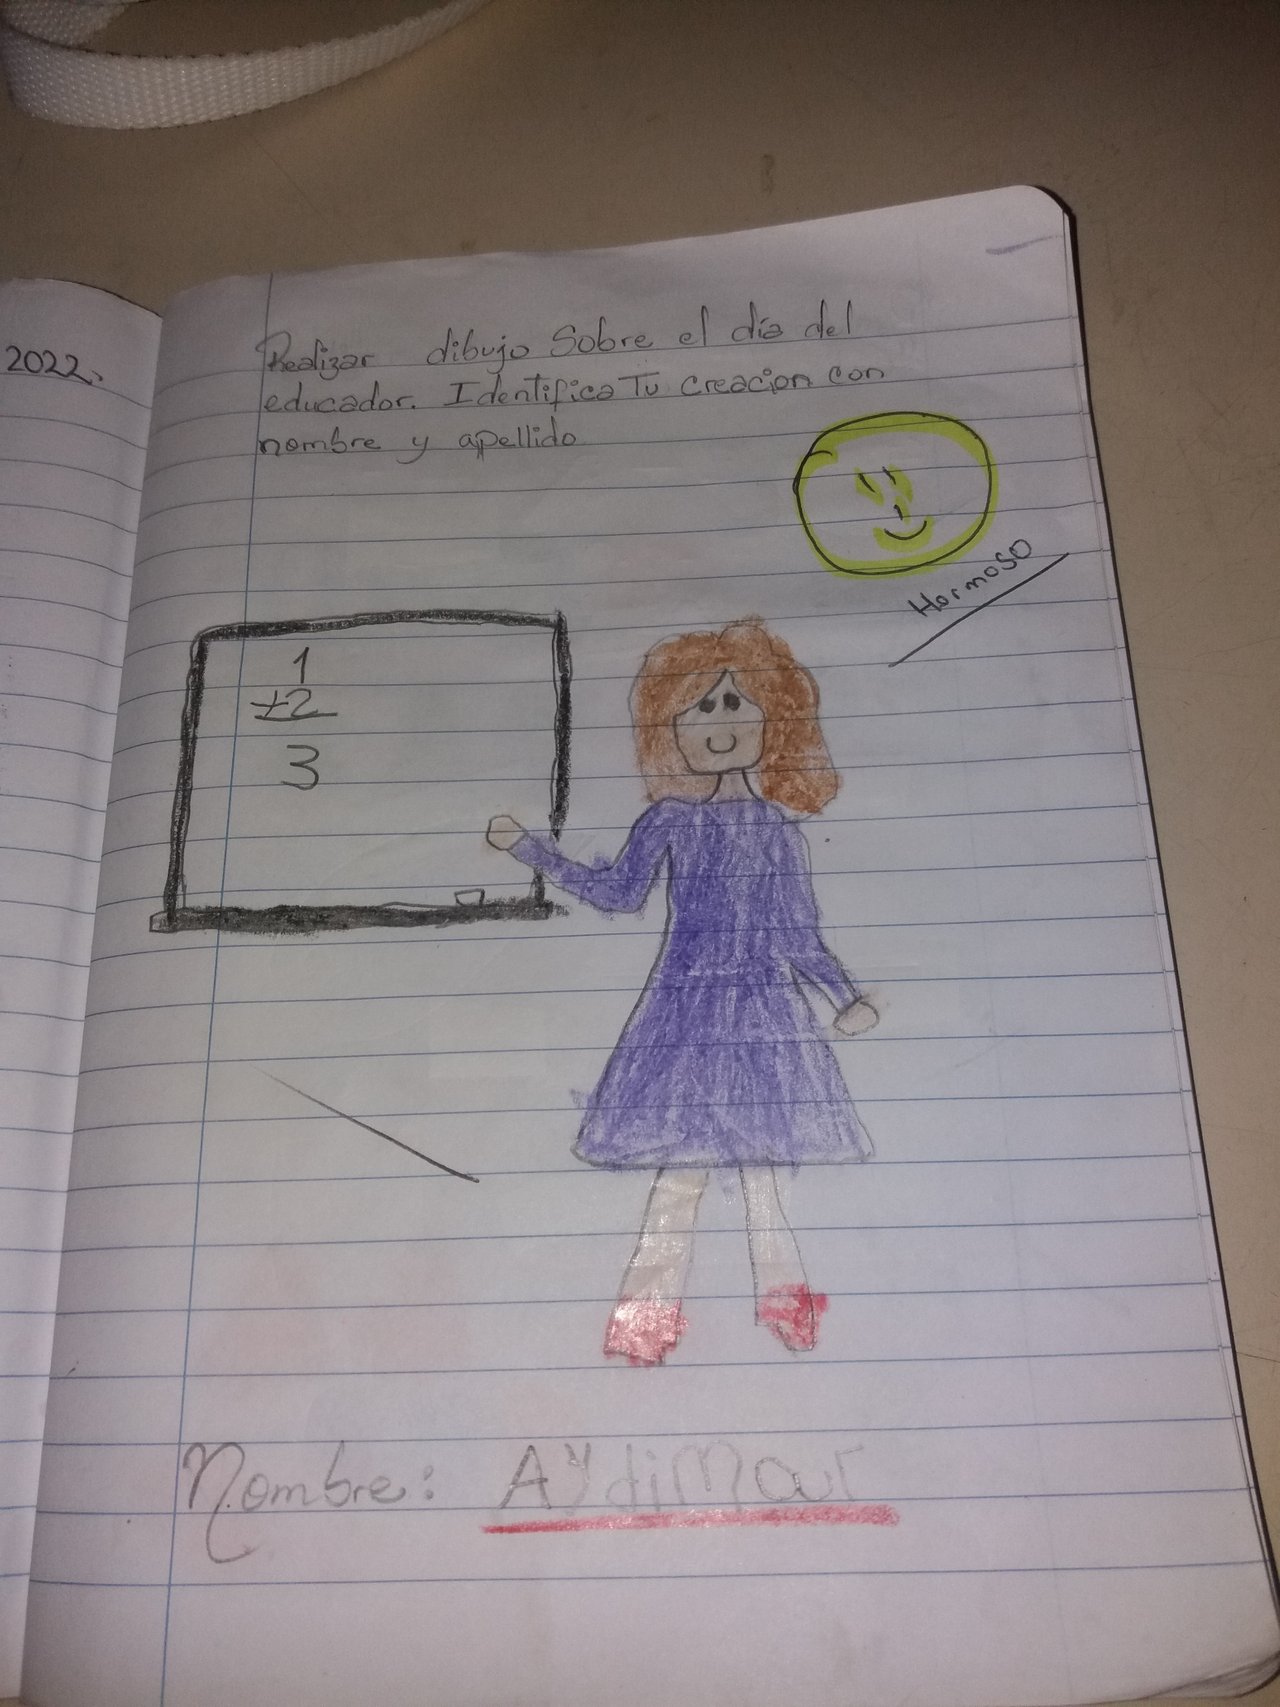 2022.
Realizar dibujo Sobre el día del
educador. Identifica Tu creacion con
nombre y apellido
Hermoso
1
+2
3
Nombre: AydiMar